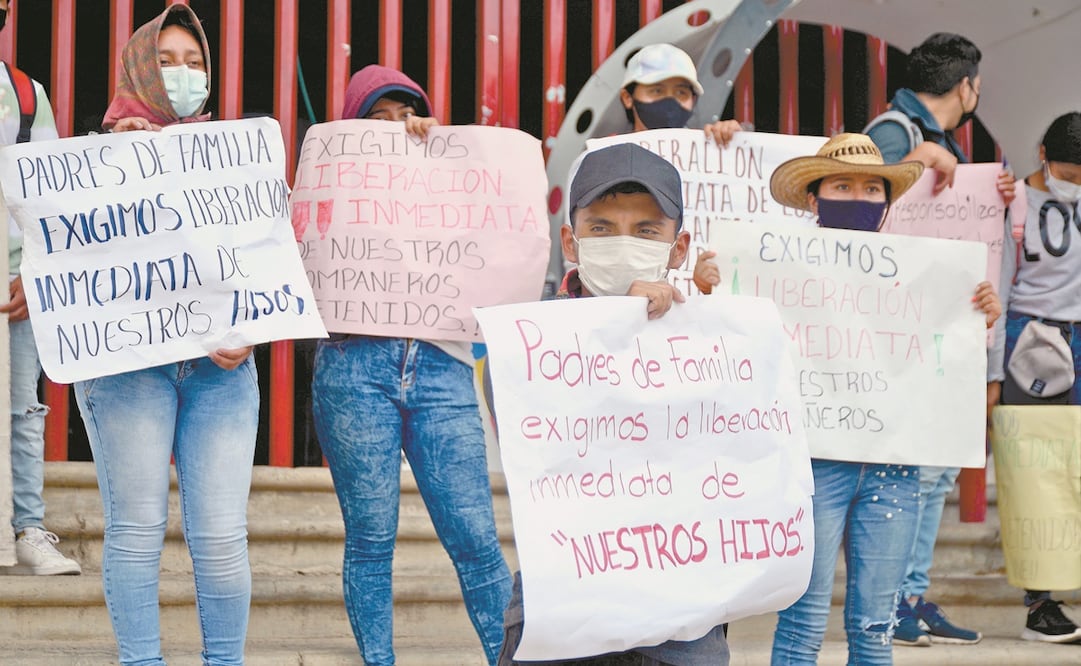 PADRES DE FAMILIA
EXIGIMOS LIBERACION
INMEDIATA DE
NUESTROS HIJOS.
EXIGIMOS
LIBERACION
INMEDIATA
DE NUESTROS
COMPAÑEROS
DETENIDOS.
Padres de Familia
exigimos la liberación
inmediata de
"NUESTROS HIJOS".
LIBERACIÓN
DE
EXIGIMOS
¡LIBERACIÓN
INMEDIATA!
NUESTROS
Responsabiliza
LO